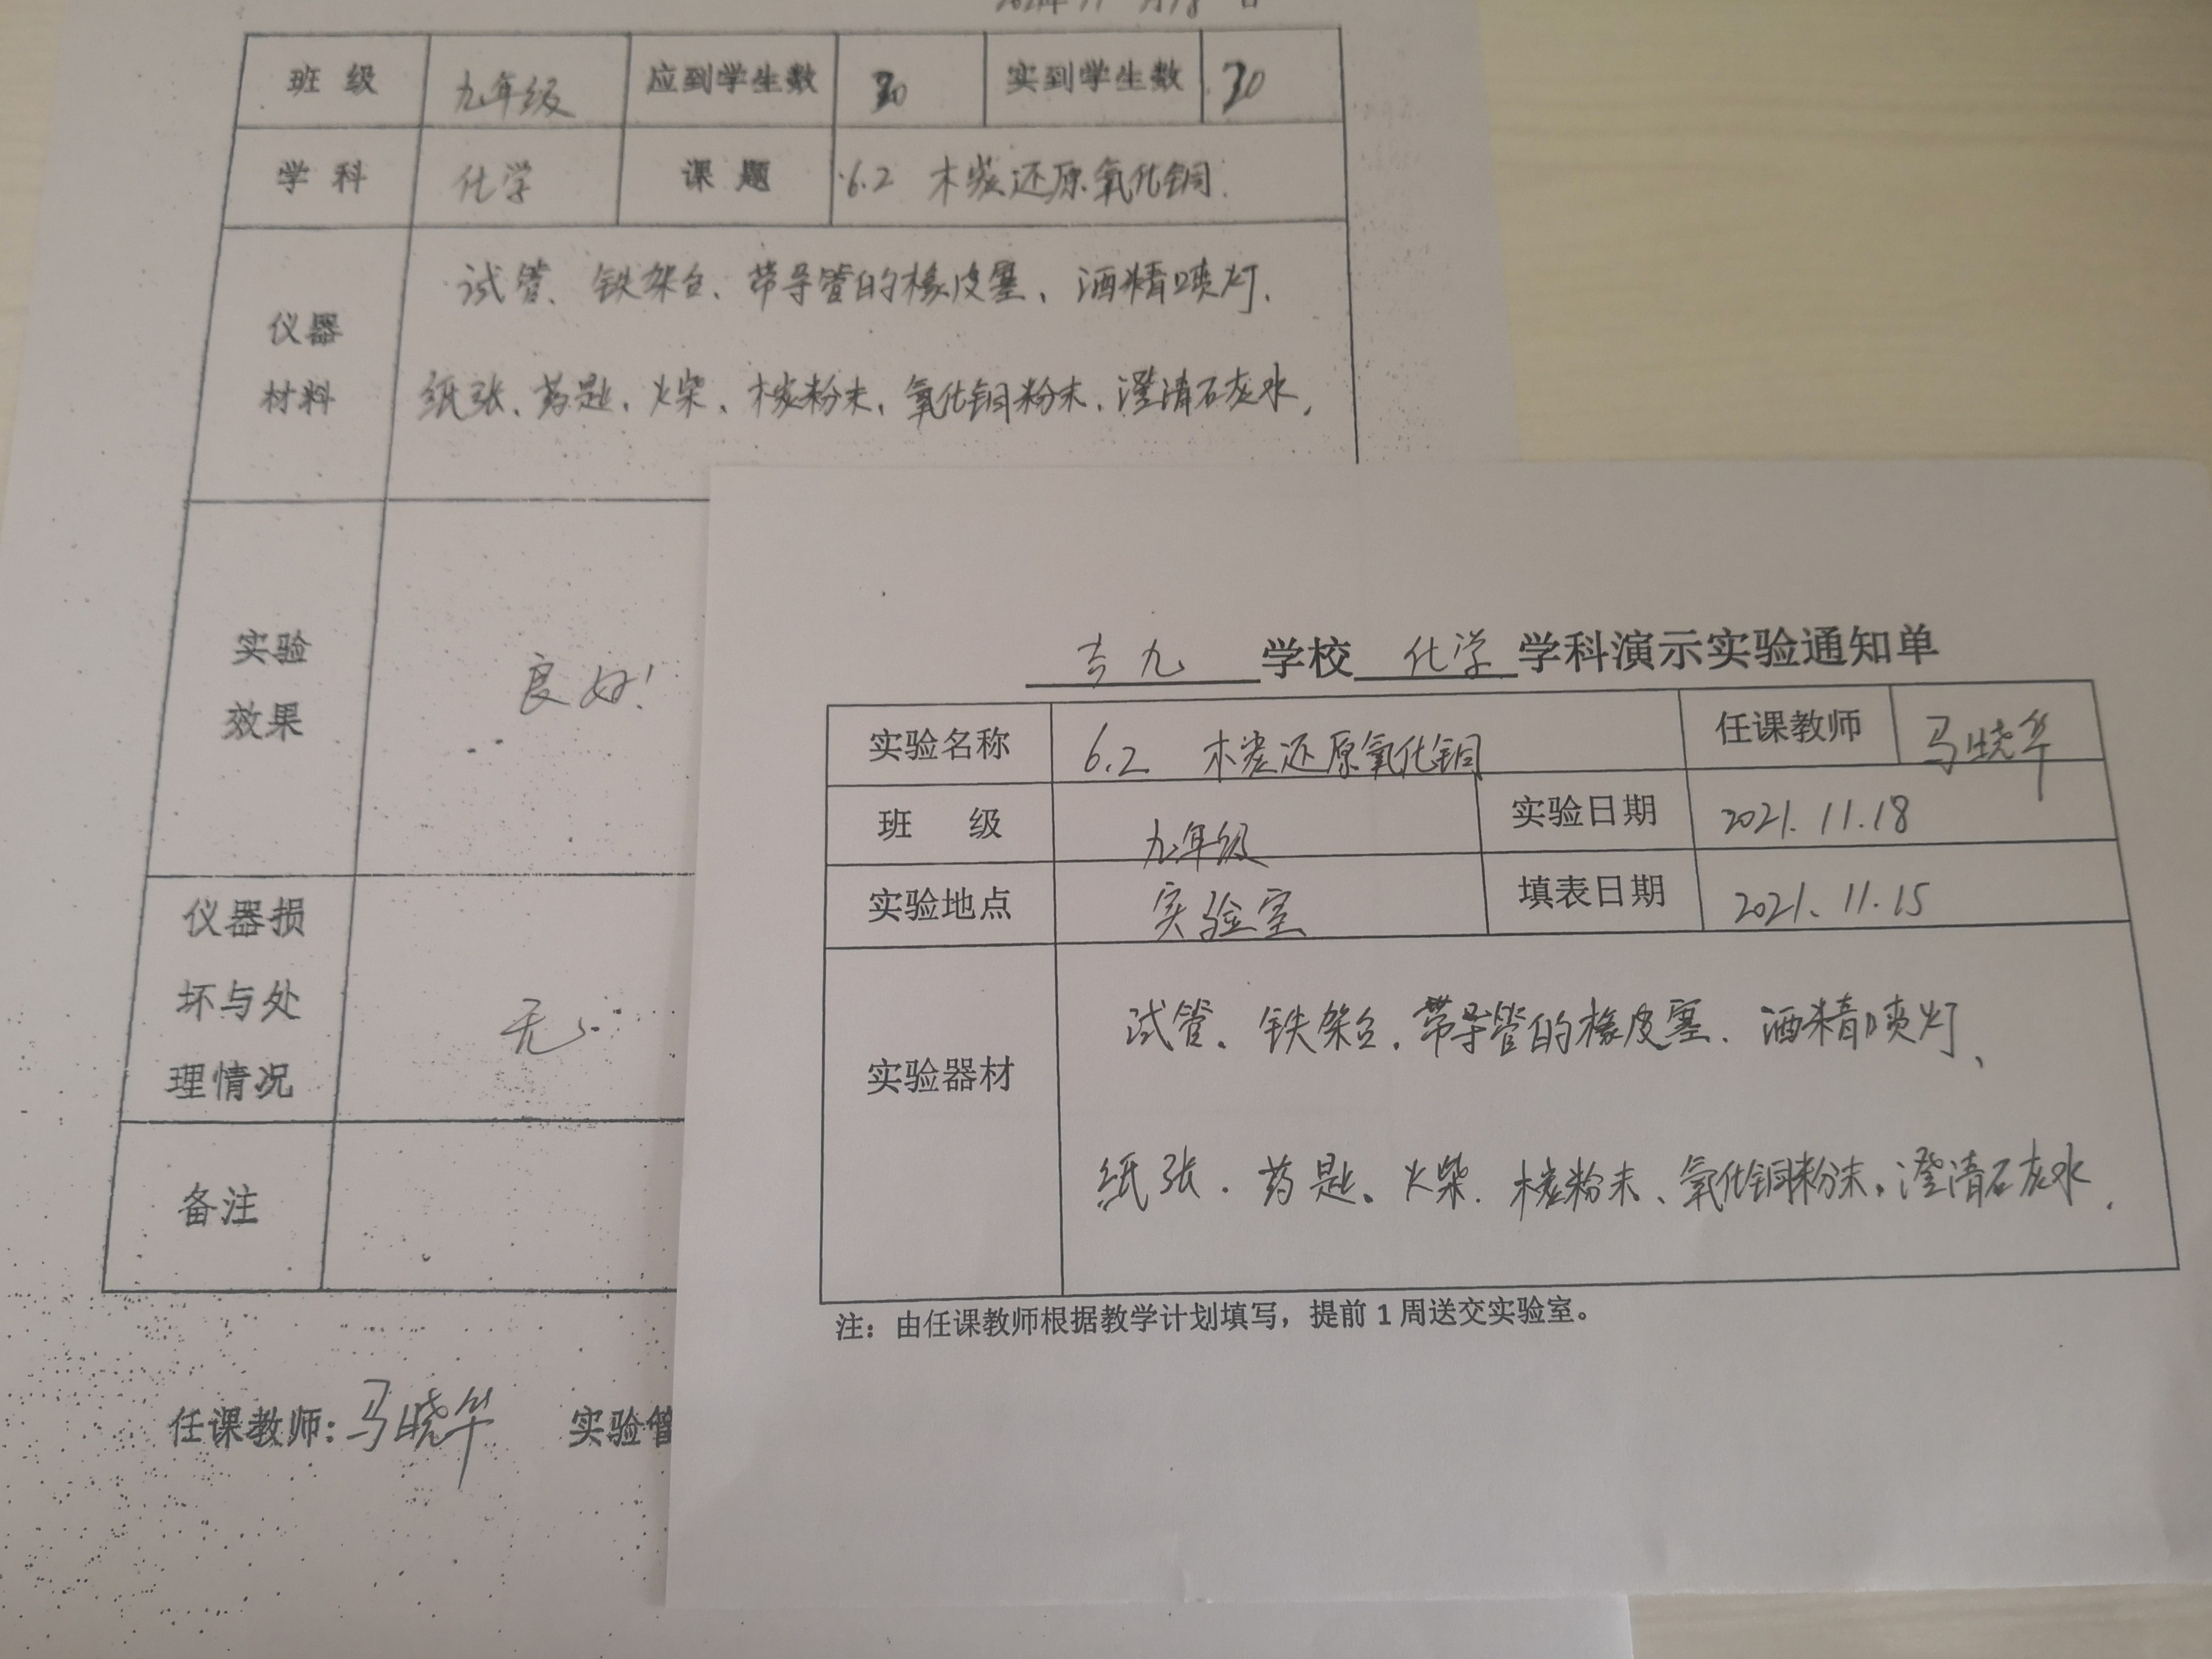 2021年11月18日
班 级 九年级 应到学生数 30 实到学生数 30
学 科 化学 课 题 6.2 木炭还原氧化铜.
仪器
材料
试管、铁架台、带导管的橡皮塞、酒精喷灯、
纸张、药匙、火柴、木炭粉末、氧化铜粉末、澄清石灰水.
实验
效果
良好!
仪器损
坏与处
理情况
无.
备注
任课教师: 马晓华 实验管
吉九 学校 化学 学科演示实验通知单
实验名称 6.2 木炭还原氧化铜 任课教师 马晓华
班 级 九年级 实验日期 2021.11.18
实验地点 实验室 填表日期 2021.11.15
实验器材
试管、铁架台、带导管的橡皮塞、酒精喷灯、
纸张、药匙、火柴、木炭粉末、氧化铜粉末、澄清石灰水.
注：由任课教师根据教学计划填写，提前1周送交实验室。